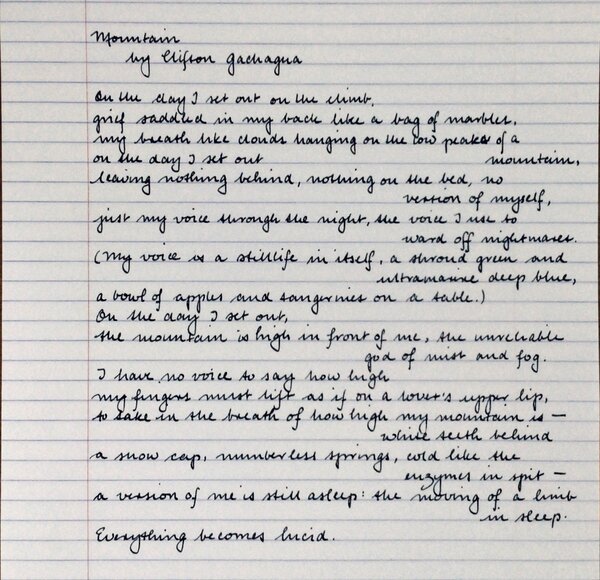 Mountain
by Clifton Gachagua
On the day I set out on the climb,
grief saddled in my back like a bag of marbles,
my breath like clouds hanging on the low peaks of a
mountain,
on the day I set out
leaving nothing behind, nothing on the bed, no
version of myself,
just my voice through the night, the voice I use to
ward off nightmares.
(My voice is a stilllife in itself, a shroud green and
ultramarine deep blue,
a bowl of apples and tangerines on a table.)
On the day I set out,
the mountain is high in front of me, the unreliable
god of mist and fog.
I have no voice to say how high
my fingers must lift as if on a lover's upper lip,
to take in the breath of how high my mountain is —
white teeth behind
a snow cap, numberless springs, cold like the
enzymes in spit —
a version of me is still asleep: the moving of a limb
in sleep.
Everything becomes lucid.